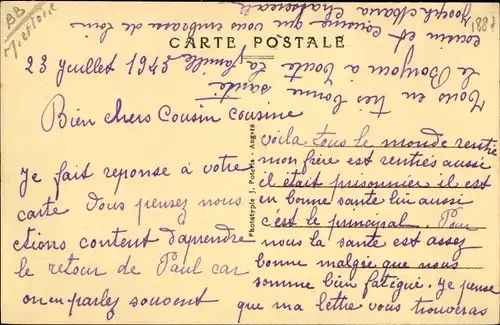 BB
1887
CARTE POSTALE
23 Juillet 1945
Bien chers Cousin Cousine
Je fait reponse à votre
carte Vous pensez nous
etions content d'aprendre
le retour de Paul car
on en parlez souvent
Phototypie J. Angers
voila tous le monde rentré
mon frère est rentrés aussi
il était prisonnier il est
en bonne sante lui aussi
c'est le principal. Pour
nous la santé est assez
bonne malgrée que nous
somme bien fatigué. Je pense
que ma lettre vous trouveras
Tous en très bonne santé
le Bonjour a toute la famille
cousin et cousine que vous embrasse de loin
Joseph Maria